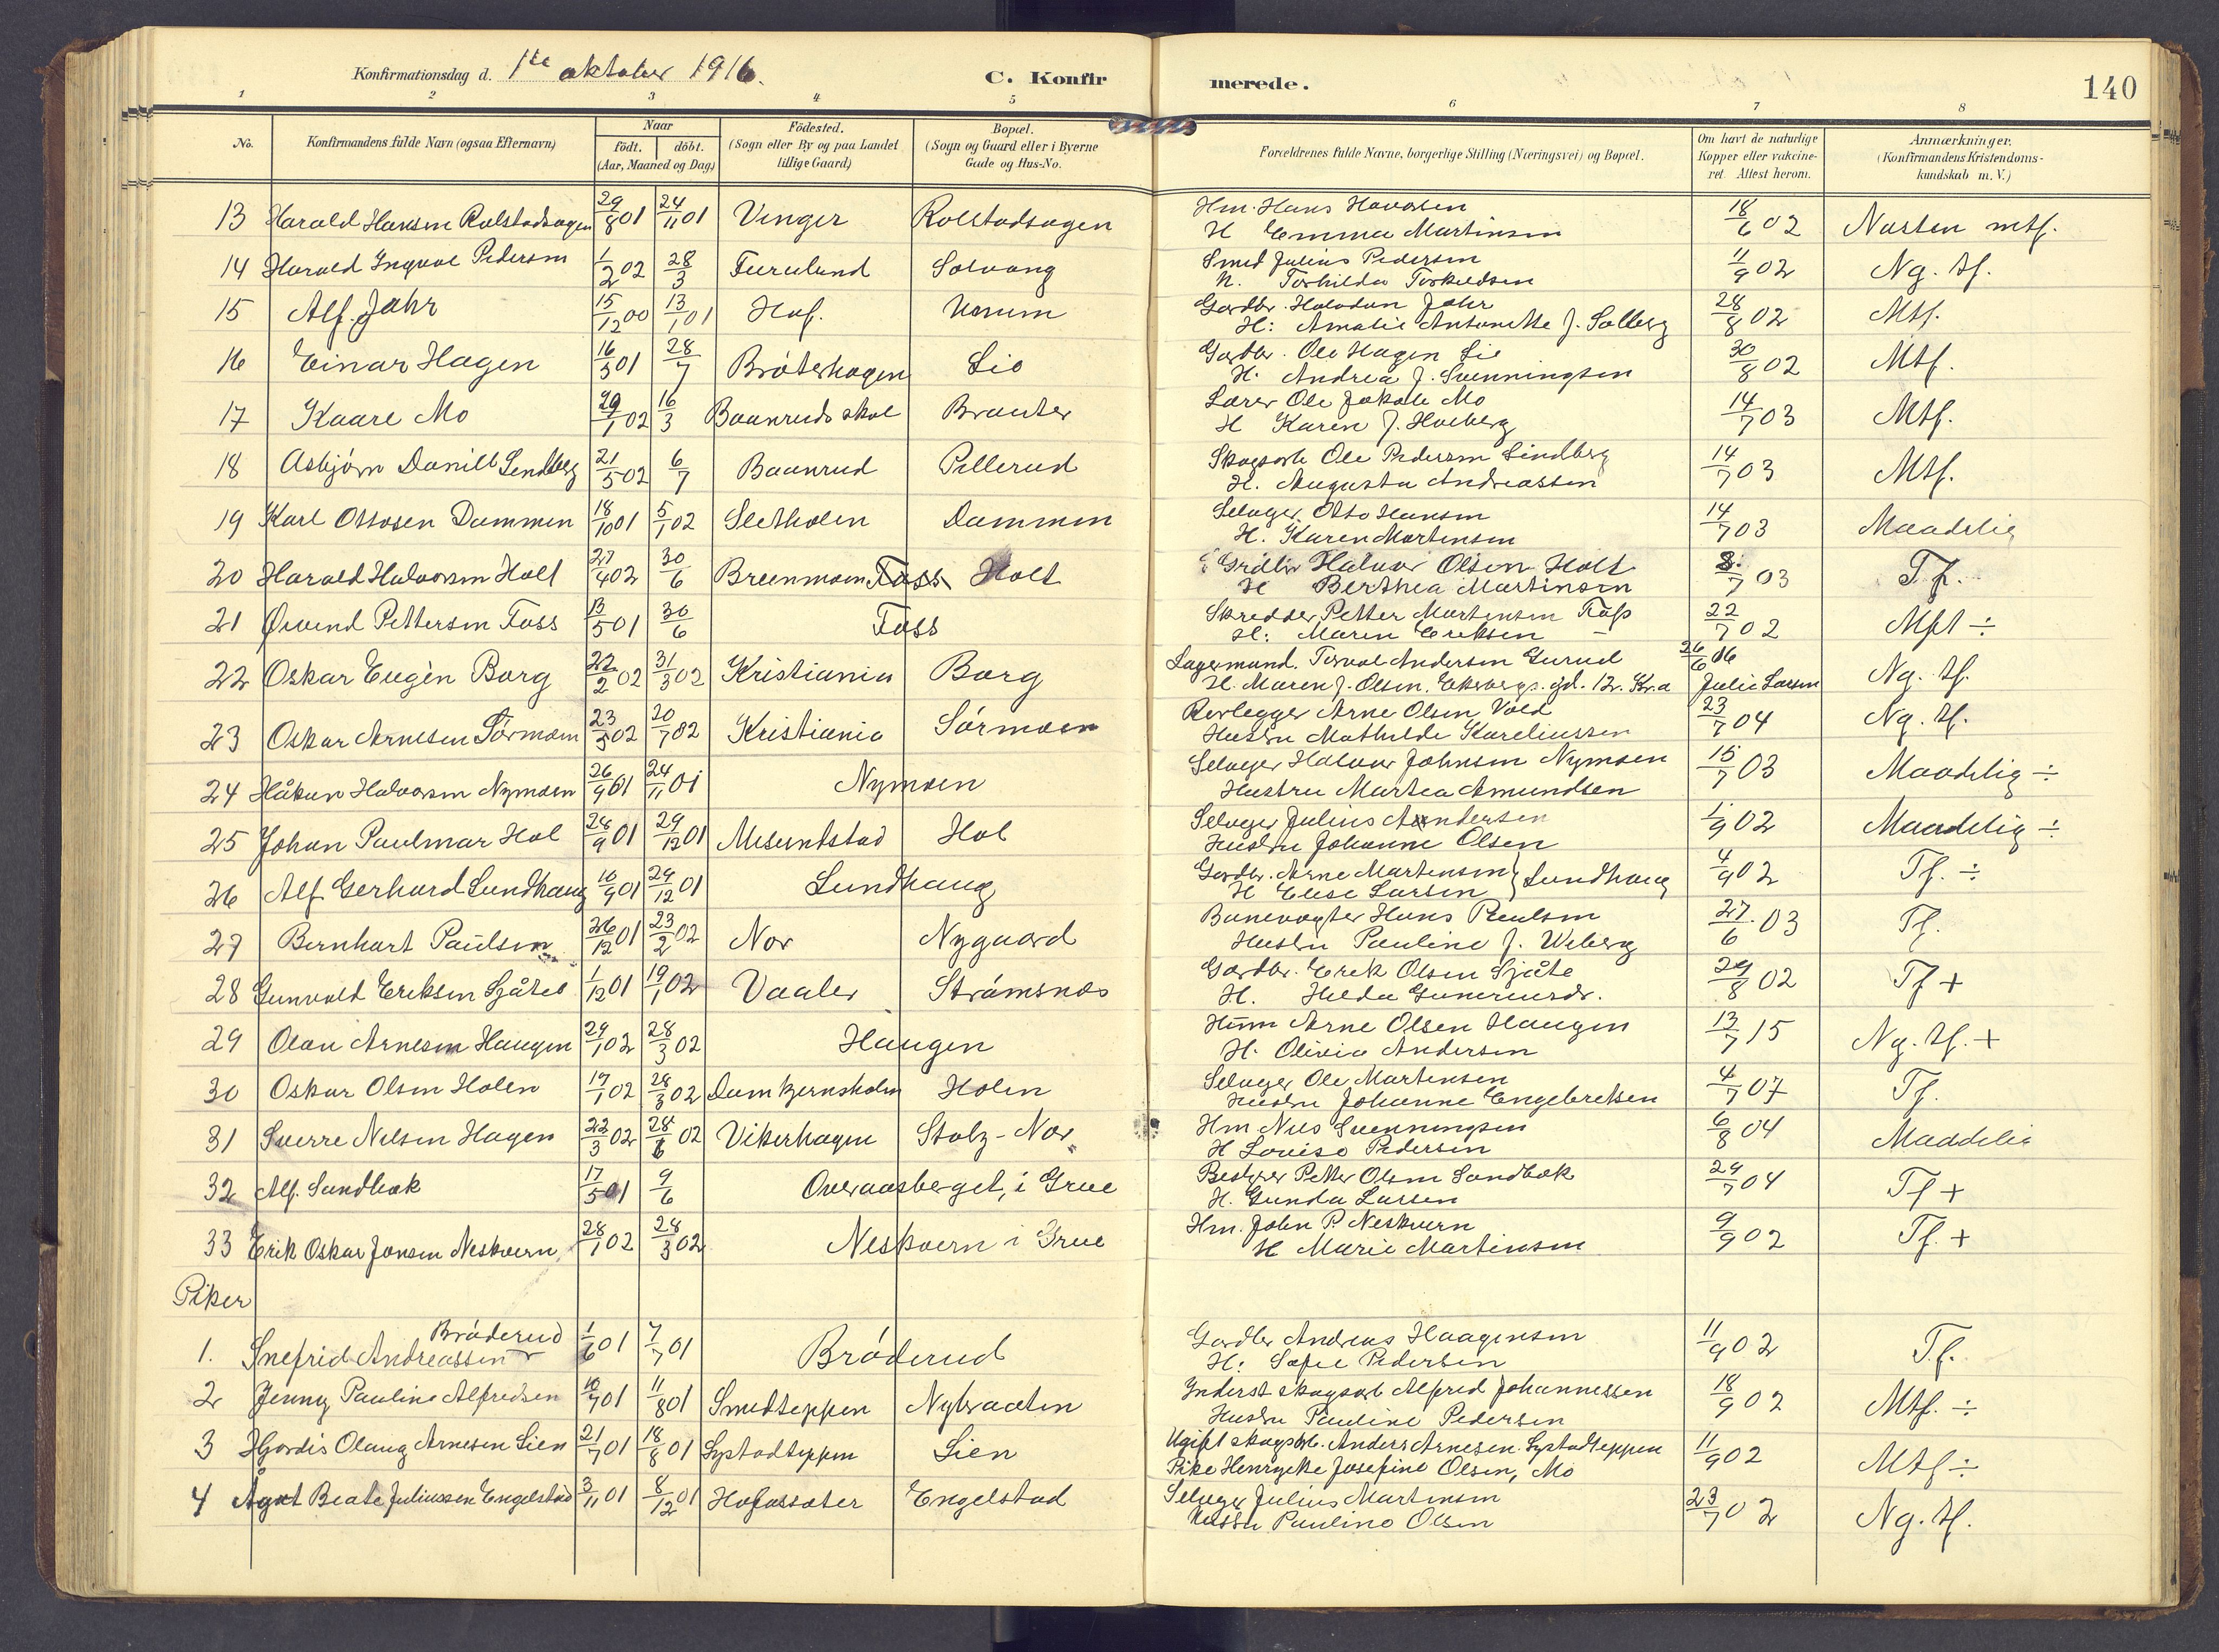 Konfirmationsdag d. 1ste oktober 1916.
C. Konfirmerede.
140
1 2 3 4 5 6 7 8
No.
Konfirmandens fulde Navn (ogsaa Efternavn)
Naar
födt. döbt.
(Aar, Maaned og Dag)
Födested.
(Sogn eller By og paa Landet
tillige Gaard)
Bopæl.
(Sogn og Gaard eller i Byerne
Gade og Hus-No.
Forældrenes fulde Navne, borgerlige Stilling (Næringsvei) og Bopæl.
Om havt de naturlige
Kopper eller vakcine-
ret. Attest herom.
Anmærkninger.
(Konfirmandens Kristendoms-
kundskab m. V.)
13 Harald Hansen Rolstadsagen 29/8 01 24/11 01 Vinger Rolstadsagen Hm. Hans Havorsen 18/6 02 Næsten mtf.
H Emma Martinsen
14 Harald Ingval Pedersen 1/2 02 28/3 Furulund Solvang Smed Julius Pedersen 11/9 02 Ng. tf.
H. Torhilda Torkildsen
15 Alf Jahr 15/12 00 13/1 01 Hof. Norum Gardbr. Halvdan Jahr 28/8 02 Mtf.
H: Amalie Antonette J. Solberg
16 Einar Hagen 16/5 01 28/7 Bråterhagen Lie Gardbr. Ole Hagen Lie 30/8 02 Mtf.
H. Andrea J. Svenningsen
17 Kaare Mo 29/1 02 16/3 Baanruds skole Branter Lærer Ole Jakob Mo 14/7 03 Mtf.
H Karen J. Hoeberg
18 Asbjørn Daniel Lindberg 21/5 02 6/7 Baanrud Pellerud Skogsarb Ole Pedersen Lindberg 14/7 03 Mtf.
H. Augusta Andreassen
19 Karl Ottosen Dammen 18/10 01 5/1 02 Sletholen Dammen Selveger Otto Hansen 14/7 03 Maadelig
H. Karen Martinsen
20 Harald Halvorsen Holt 27/4 02 30/6 Bruenmoen Holt Grdbr Halvor Olsen Holt 8/7 03 T.f.
H Berthea Martinsen
21 Øivind Pettersen Foss 13/5 01 30/6 Foss Skredder Petter Martinsen Foss 22/7 02 Mft ÷
H: Maren Eriksen —
22 Oskar Eugèn Borg 22/2 02 31/3 02 Kristiania Borg Lagermand. Torval Andersen Gurud 26/6 06 Ng. tf.
H. Maren J. Olsen. Ekebergs. gd. 12. Kr.a Julie Larsen
23 Oskar Arnesen Sörmoen 23/5 02 20/7 02 Kristiania Sörmoen Rørlegger Arne Olsen Vold 23/7 04 Ng. tf.
Hustru Mathilde Kareliussen
24 Håkun Halvorsen Nymoen 26/9 01 24/11 01 Nymoen Selveger Halvor Johnsen Nymoen 15/7 03 Maadelig ÷
Hustru Martea Amundsen
25 Johan Paulmar Hol 28/9 01 29/12 01 Mesundstad Hol Selveger Julius Andersen 1/9 02 Maadelig ÷
Hustru Johanne Olsen
26 Alf Gerhard Lundhaug 10/9 01 29/12 01 Lundhaug Gardbr. Arne Martinsen } Lundhaug 4/9 02 Tf. ÷
H Elise Larsen
27 Bernhart Paulsen 26/12 01 23/2 02 Nor Nygaard Banevogter Hans Paulsen 27/6 03 Tf.
Hustru Pauline J. Weberg
28 Gunvald Eriksen Sjåtil 1/12 01 19/1 02 Vaaler Strömsnes Gardbr. Erik Olsen Sjåte 29/8 02 Tf +
H. Hilda Gunerusdr.
29 Olav Arnesen Haugen 29/1 02 28/3 02 Haugen Hmm Arne Olsen Haugen 13/7 15 Ng. tf. +
H. Olivia Andersen
30 Oskar Olsen Holen 17/1 02 28/3 02 Damtjernsholen Holen Selveger Ole Martinsen 4/7 07 Tf.
Hustru Johanne Engebretsen
31 Sverre Nilsen Hagen 22/3 02 28/6 02 Vikerhagen Stolz-Nor. Hm Nils Svenningsen 6/8 04 Maadelig
H Louise Pedersen
32 Alf. Sandbæk 17/5 01 9/6 Overaasberget, i Grue Bestyrer Petter Olsen Sandbæk 29/7 04 Tf +
H. Gunda Larsen
33 Erik Oskar Jonsen Neskvern 28/1 02 28/3 02 Neskvern i Grue Hm. John P. Neskvern 9/9 02 Tf. +
H Marie Martinsen
Piker
1. Snefrid Andreassen Bröderud 1/6 01 7/7 01 Bröderud Gardbr Andreas Haagensen 11/9 02 T.f.
H: Sofie Pedersen
2 Jenny Pauline Alfredsen 10/7 01 11/8 01 Smedteppen Nybraaten Inderst skogsarb Alfred Johannessen 18/9 02 Mtf. ÷
Hustru Pauline Pedersen
3 Hjördis Olaug Arnesen Lien 21/7 01 18/8 01 Systadteppen Lien Ugift skogsarb. Anders Arnesen. Systadteppen 11/9 02 Mtf ÷
Pike Henrykke Josefine Olsen, Mo
4 Ågot Beate Juliussen Engelstad 3/11 01 8/12 01 Hofossæter Engelstad Selveger Julius Martinsen 23/7 02 Ng. tf.
Hustru Pauline Olsen